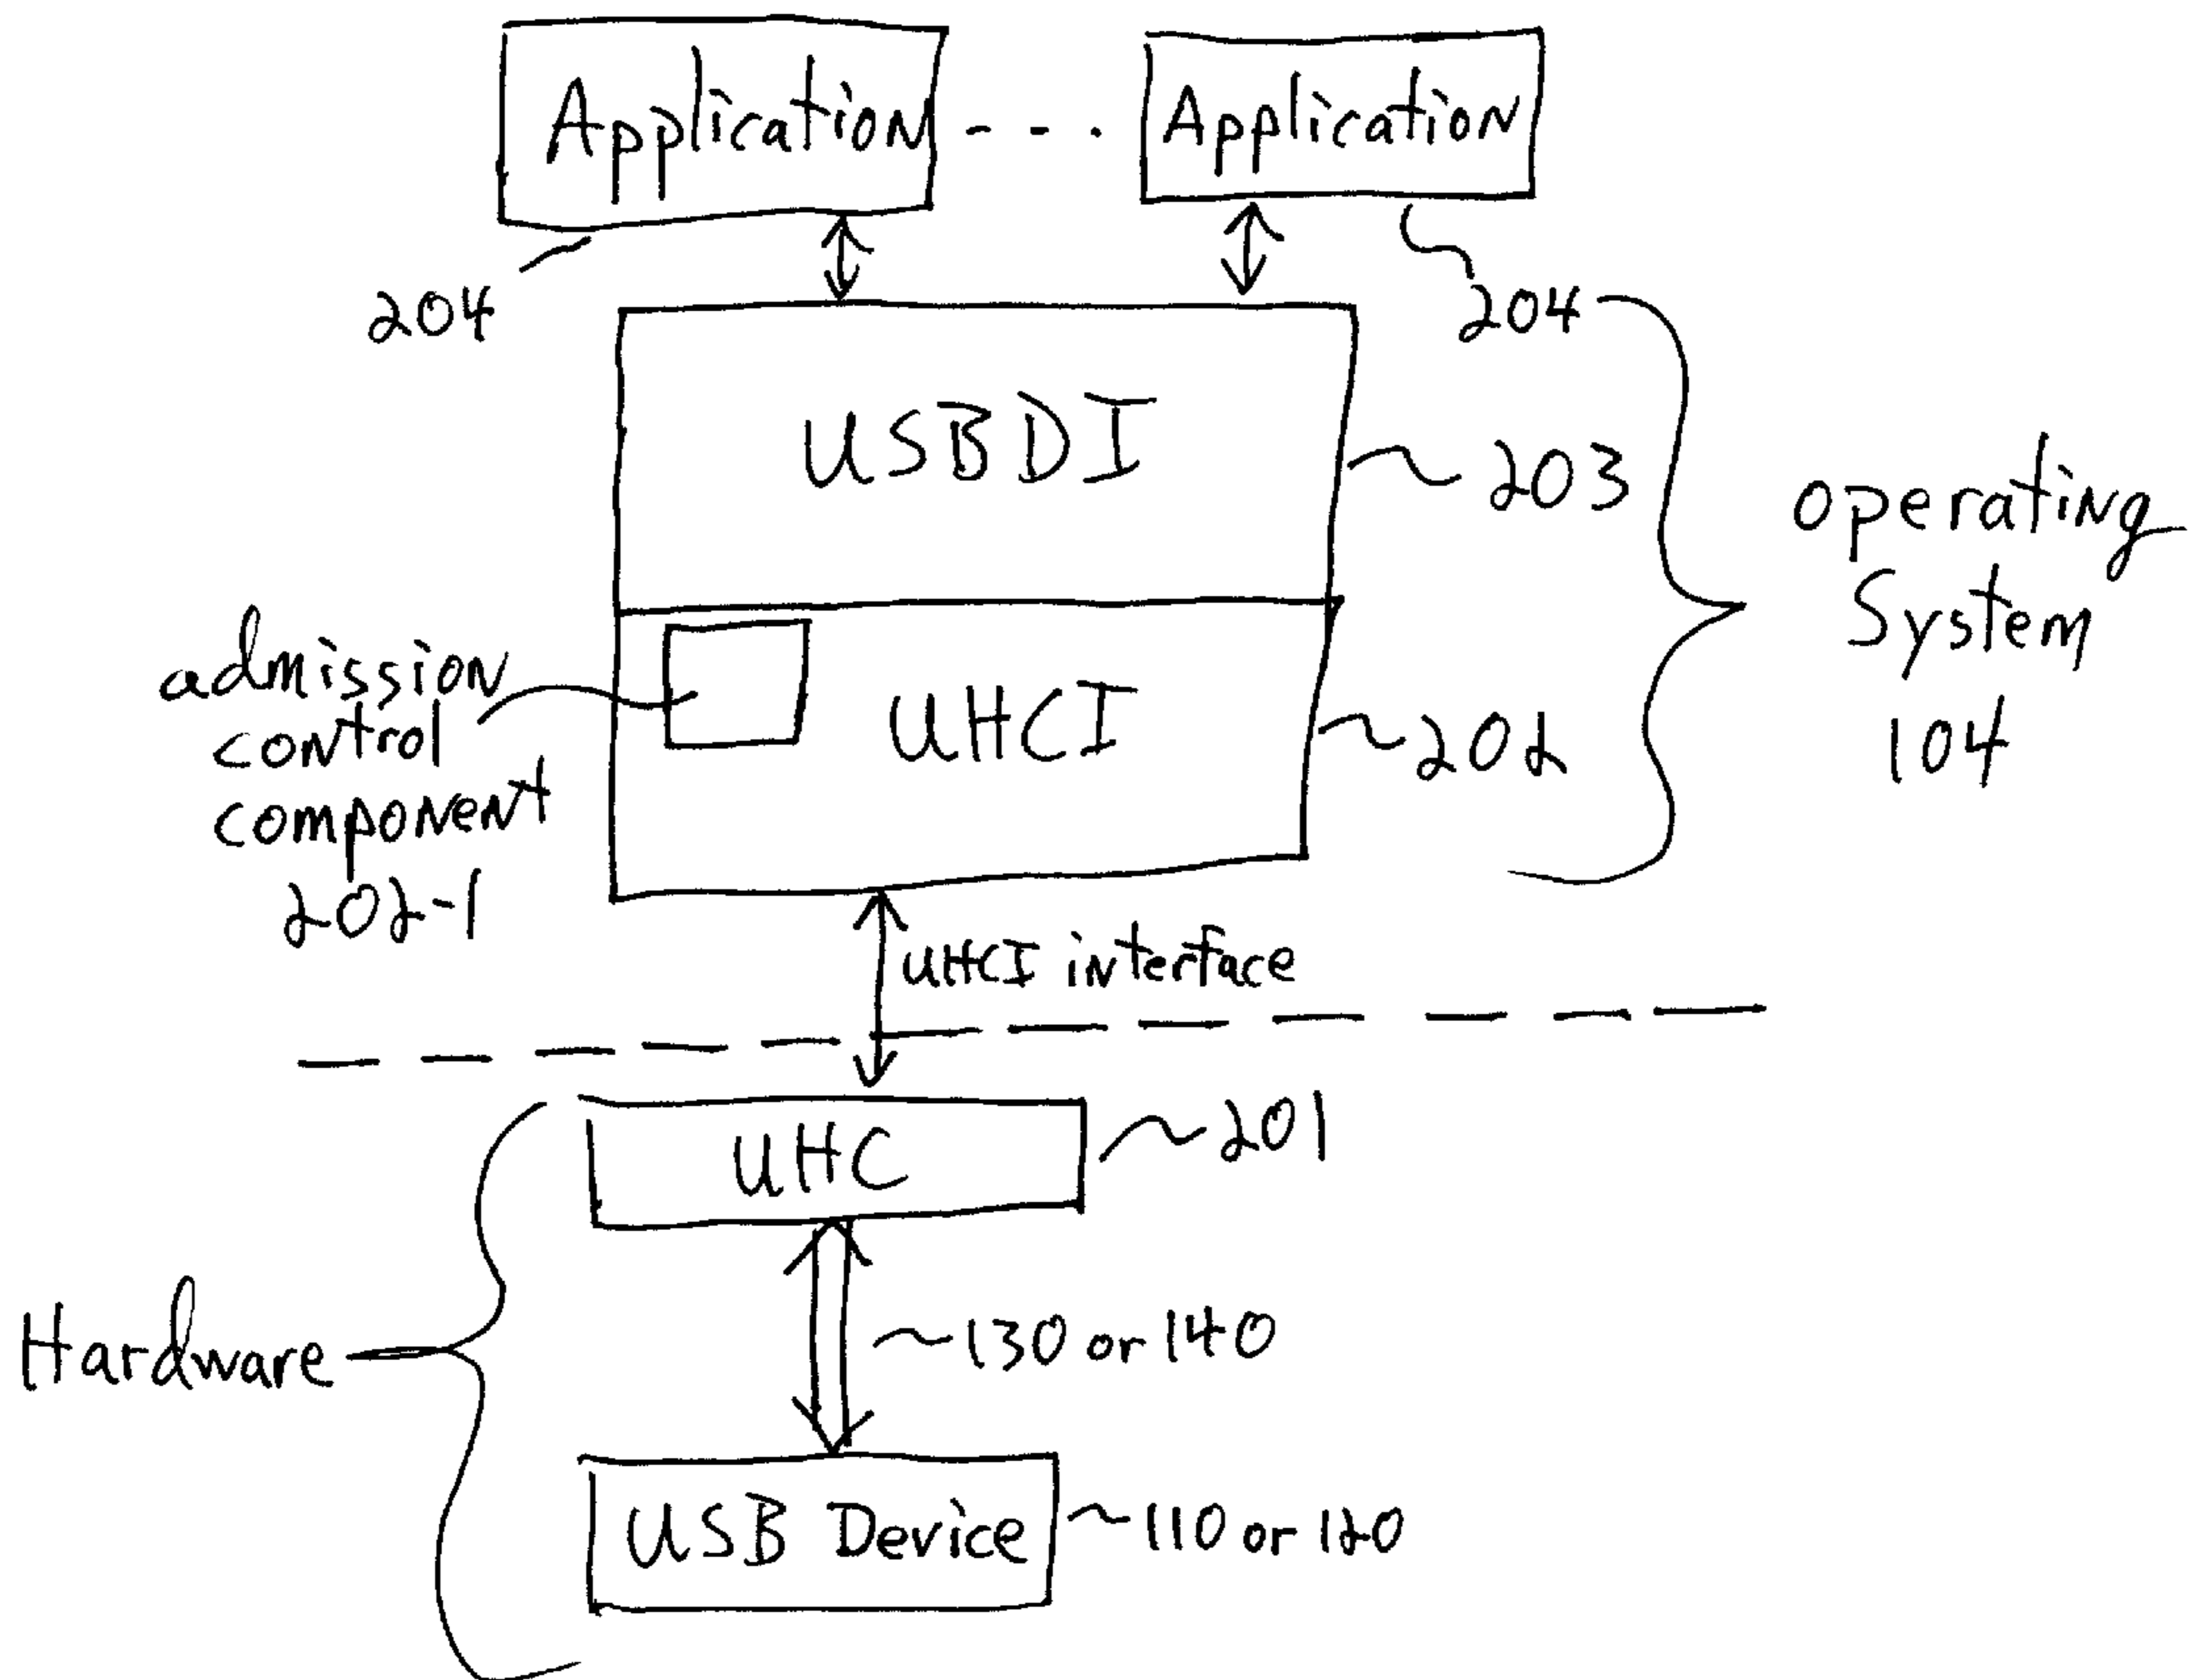 Application - - - Application
204
204
USBDI
203
operating
System
104
admission
control
component
202-1
UHCI
202
UHCI interface
UHC
201
Hardware
130 or 140
USB Device
110 or 120